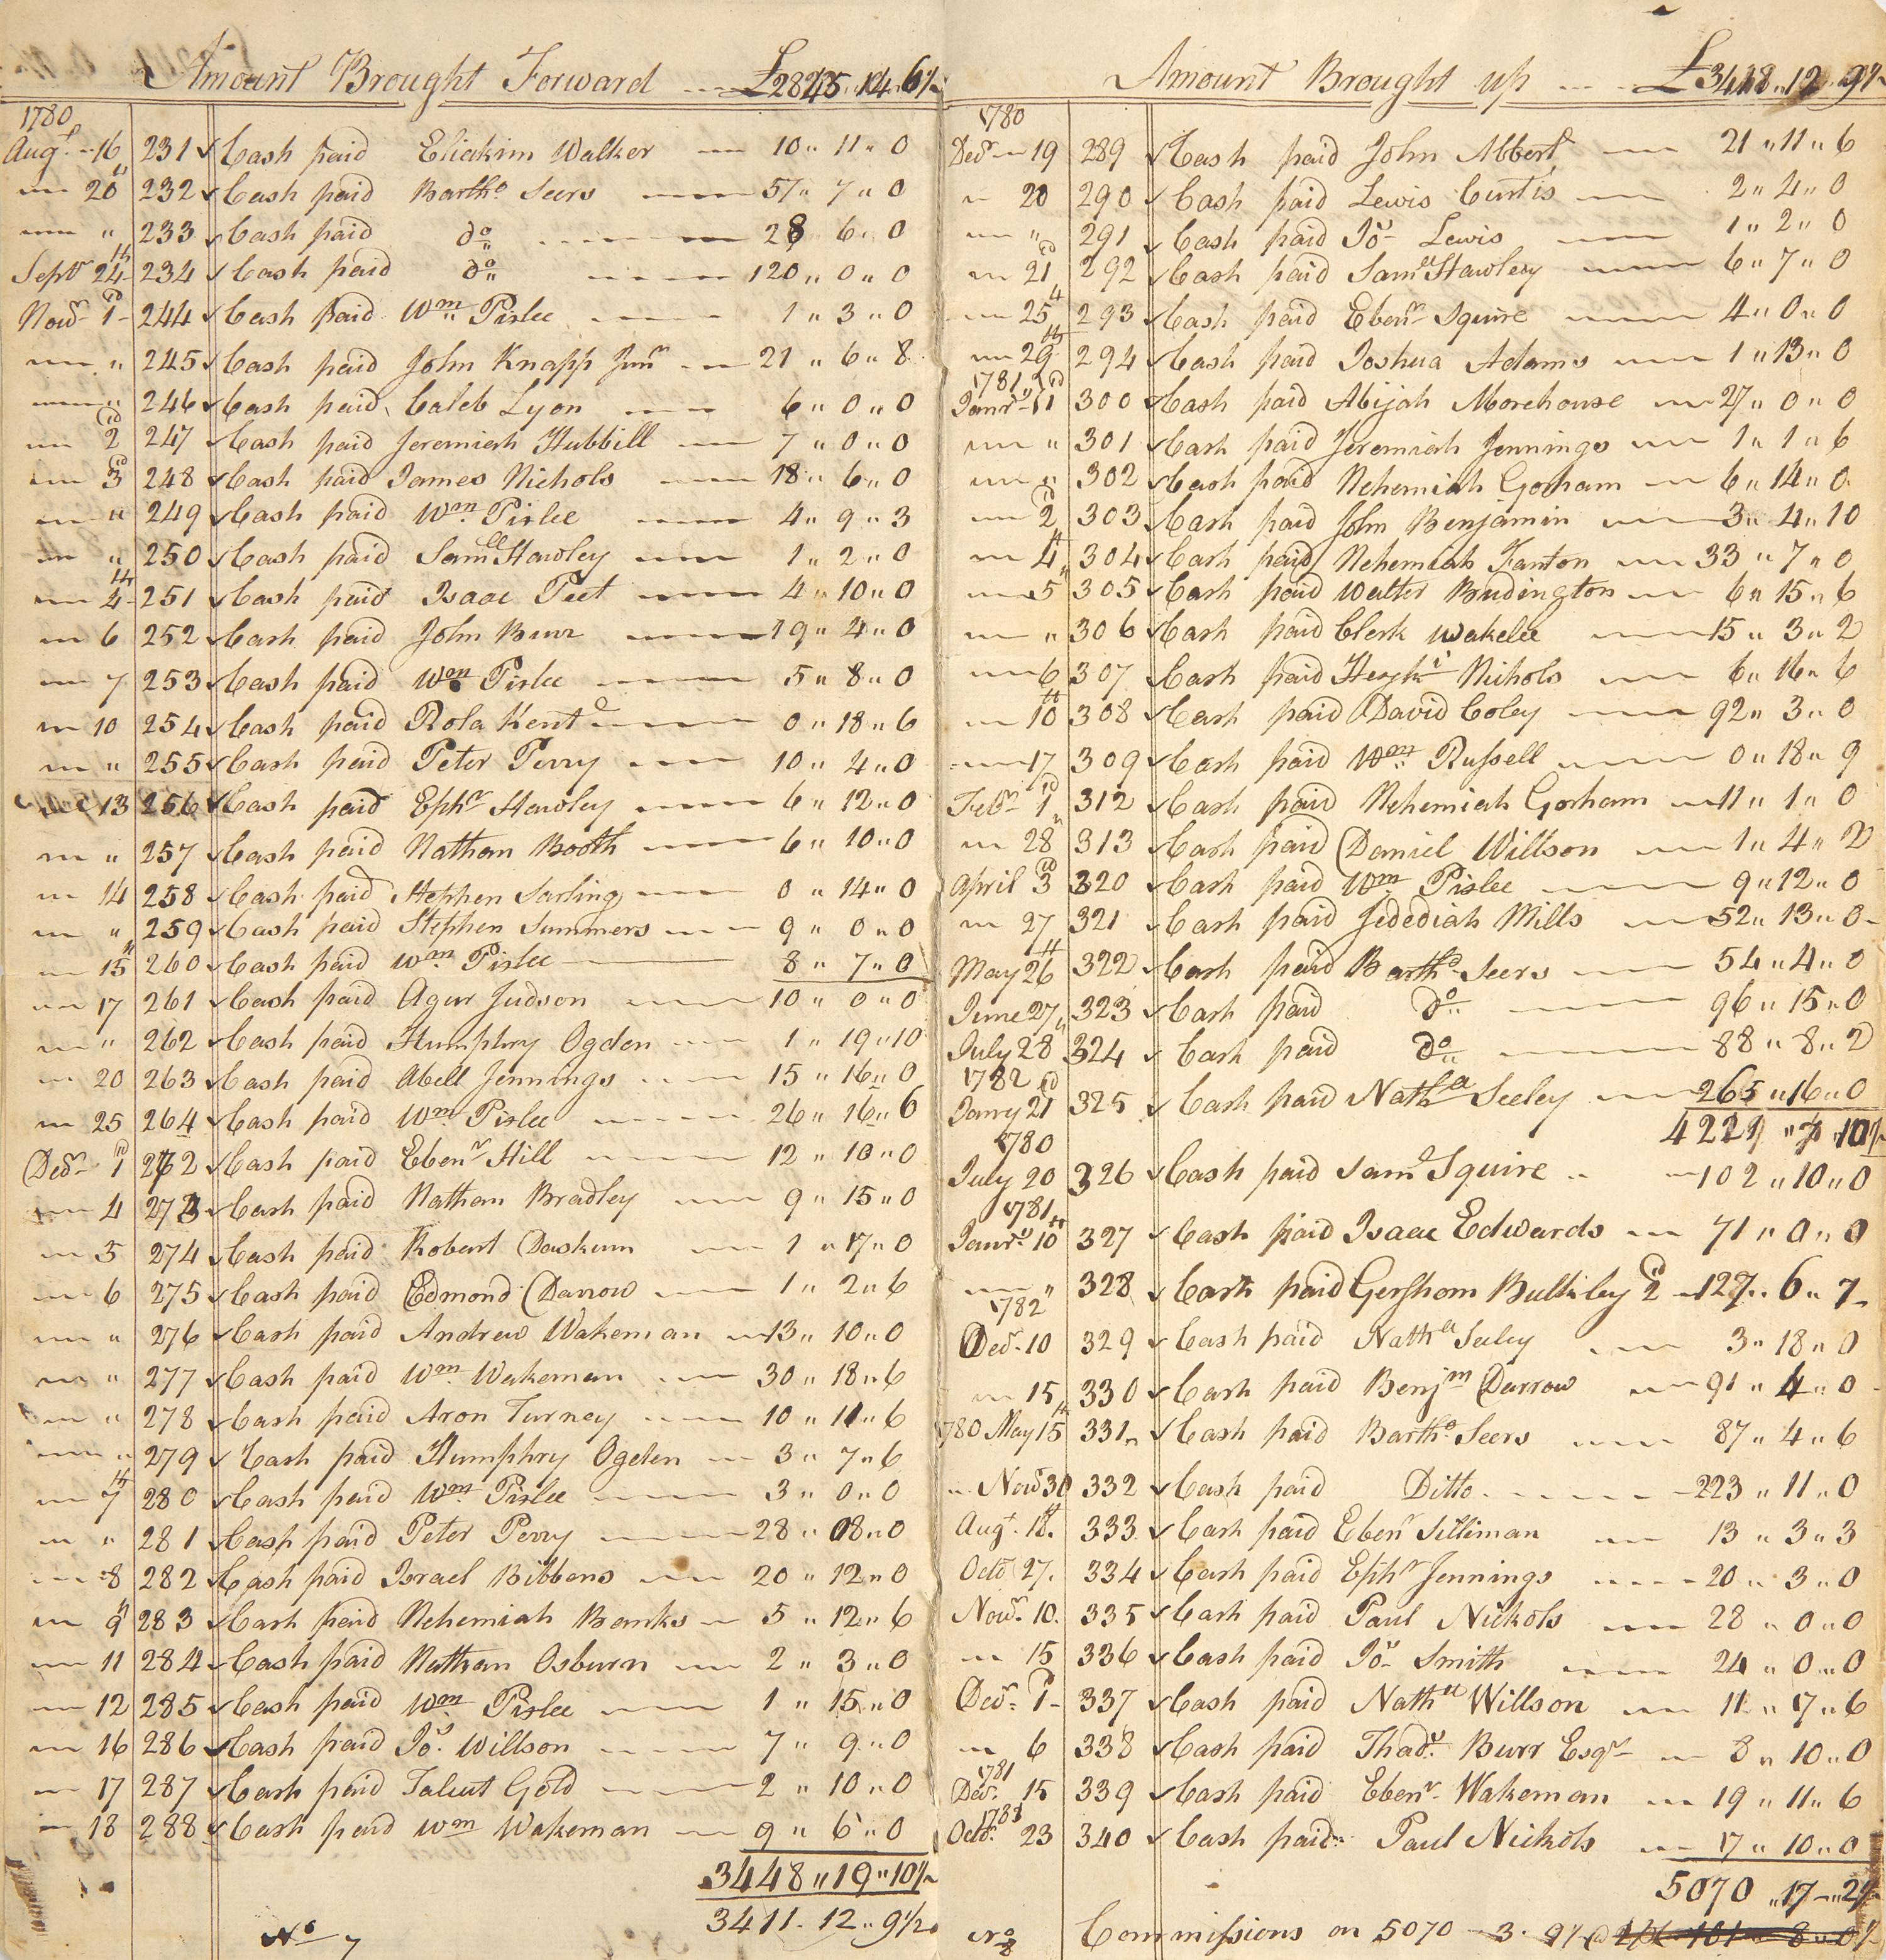 Amount Brought Forward £2845.14.6½
1780
Augt 16 231 Cash paid Eliakim Walker 10 " 11 " 0
" 20th 232 Cash paid Bartho Seers 57 " 7 " 0
" " 233 Cash paid do 28 6 " 0
Septr 24th 234 Cash paid do 120 " 0 " 0
Novr 1st 244 Cash paid Wm Pislee 1 " 3 " 0
" " 245 Cash paid John Knapp Junr 21 " 6 " 8
" " 246 Cash paid Caleb Lyon 6 " 0 " 0
" 2d 247 Cash paid Jeremiah Hubbill 7 " 0 " 0
" 3d 248 Cash paid James Nichols 18 " 6 " 0
" " 249 Cash paid Wm Pislee 4 " 9 " 3
" " 250 Cash paid Samll Hawley 1 " 2 " 0
" 4th 251 Cash paid Isaac Peet 4 " 10 " 0
" 6 252 Cash paid John Burr 19 " 4 " 0
" 7 253 Cash paid Wm Pislee 5 " 8 " 0
" 10 254 Cash paid Rola Kent 0 " 18 " 6
" " 255 Cash paid Peter Perry 10 " 4 " 0
" 13 256 Cash paid Ephr Hawley 6 " 12 " 0
" " 257 Cash paid Nathan Booth 6 " 10 " 0
" 14 258 Cash paid Stephen Sarling 0 " 14 " 0
" " 259 Cash paid Stephen Summers 9 " 0 " 0
" 15th 260 Cash paid Wm Pislee 8 " 7 " 0
" 17 261 Cash paid Agur Judson 10 " 0 " 0
" " 262 Cash paid Humphry Ogden 1 " 19 " 10
" 20 263 Cash paid Abell Jennings 15 " 16 " 0
" 25 264 Cash paid Wm Pislee 26 " 16 " 6
Decr 1st 272 Cash paid Ebenr Hill 12 " 10 " 0
" 4 273 Cash paid Nathan Bradley 9 " 15 " 0
" 5 274 Cash paid Robert Daskum 1 " 17 " 0
" 6 275 Cash paid Edmond Darrow 1 " 2 " 6
" " 276 Cash paid Andrew Wakeman 13 " 10 " 0
" " 277 Cash paid Wm Wakeman 30 " 18 " 6
" " 278 Cash paid Aron Turney 10 " 11 " 6
" " 279 Cash paid Humphry Ogden 3 " 7 " 6
" 7th 280 Cash paid Wm Pislee 3 " 0 " 0
" " 281 Cash paid Peter Perry 28 " 08 " 0
" 8 282 Cash paid Israel Bibbens 20 " 12 " 0
" 9th 283 Cash paid Nehemiah Banks 5 " 12 " 6
" 11 284 Cash paid Nathan Osburn 2 " 3 " 0
" 12 285 Cash paid Wm Pislee 1 " 15 " 0
" 16 286 Cash paid Jos. Willson 7 " 9 " 0
" 17 287 Cash paid Talcut Gold 2 " 10 " 0
" 18 288 Cash paid Wm Wakeman 9 " 6 " 0
3448 " 19 " 10½
3411 . 12 " 9½
No 7
Amount Brought up £3418 " 12 " 9½
1780
Decr 19 289 Cash paid John Abbert 21 " 11 " 6
" 20 290 Cash paid Lewis Curtis 2 " 4 " 0
" " 291 Cash paid Jos Lewis 1 " 2 " 0
" 21 292 Cash paid Samll Hawley 6 " 7 " 0
" 25th 293 Cash paid Ebenr Squire 4 " 0 " 0
" 29th 294 Cash paid Joshua Adams 1 " 13 " 0
1781
Janry 1st 300 Cash paid Abijah Morehouse 27 " 0 " 0
" " 301 Cash paid Jeremiah Jennings 1 " 1 " 6
" " 302 Cash paid Nehemiah Gorham 6 " 14 " 0
" 2d 303 Cash paid John Benjamin 3 " 4 " 10
" 4th 304 Cash paid Nehemiah Fanton 33 " 7 " 0
" 5 305 Cash paid Walter Budington 6 " 15 " 6
" " 306 Cash paid Clerk Wakelee 15 " 3 " 2
" 6 307 Cash paid Hezki Nichols 6 " 16 " 6
" 10th 308 Cash paid David Coley 92 " 3 " 0
" 17 309 Cash paid Wm Russell 0 " 18 " 9
Febr 1st 312 Cash paid Nehemiah Gorham 11 " 1 " 0
" 28 313 Cash paid Daniel Willson 1 " 4 " 2
April 3d 320 Cash paid Wm Pislee 9 " 12 " 0
" 27 321 Cash paid Jedediah Mills 52 " 13 " 0
May 26th 322 Cash paid Bartho Seers 54 " 4 " 0
June 27 323 Cash paid do 96 " 15 " 0
July 28 324 Cash paid do 88 " 8 " 2
1782
Janry 21 325 Cash paid Nathll Seeley 265 " 16 " 0
4229 " 7 " 10½
1780
July 20 326 Cash paid Saml Squire 102 " 10 " 0
1781
Janry 10th 327 Cash paid Isaac Edwards 71 " 0 " 0
" " 328 Cash paid Gershom Bulkley 2d 127 " 6 " 7
1782
Decr 10 329 Cash paid Nathll Seeley 3 " 18 " 0
" 15 330 Cash paid Benjm Darrow 91 " 4 " 0
1780 May 15th 331 Cash paid Bartho Seers 87 " 4 " 6
" Novr 30 332 Cash paid Ditto 223 " 11 " 0
Augt 18th 333 Cash paid Ebenr Silliman 13 " 3 " 3
Octo 27. 334 Cash paid Ephr Jennings 20 " 3 " 0
Novr. 10. 335 Cash paid Paul Nickols 28 " 0 " 0
" 15 336 Cash paid Jos Smith 24 " 0 " 0
Decr. 1st 337 Cash paid Nathll Willson 11 " 17 " 6
" 6 338 Cash paid Thads. Burr Esqr 8 " 10 " 0
1781
Decr. 15 339 Cash paid Ebenr. Wakeman 19 " 11 " 6
1783
Octo. 23 340 Cash paid Paul Nickols 17 " 10 " 0
5070 " 17 " 2½
No 8 Commissions on 5070 3. 9½ @